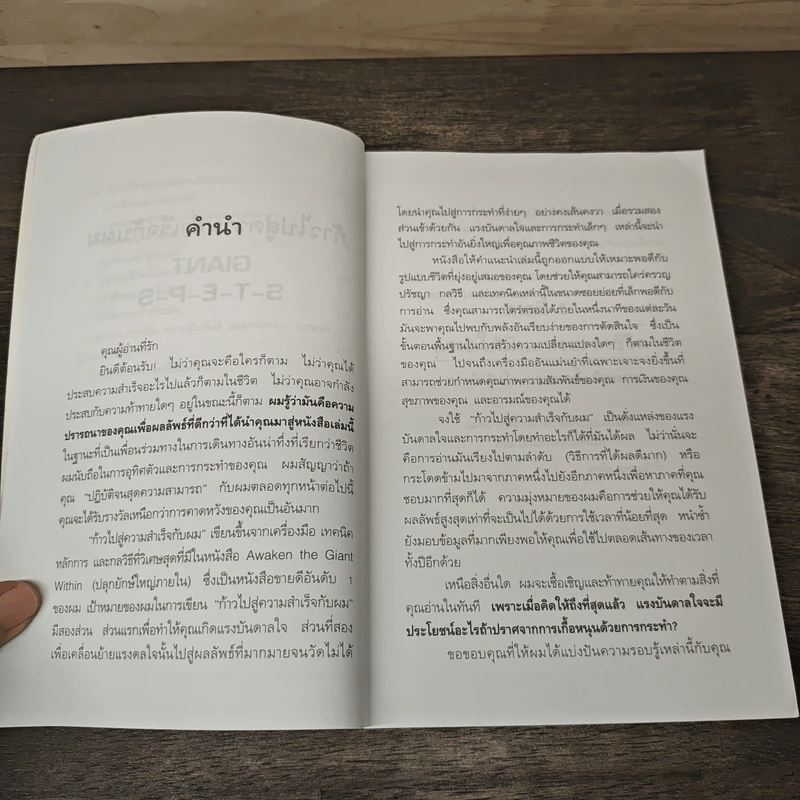 คำนำ
คุณผู้อ่านที่รัก
ยินดีต้อนรับ! ไม่ว่าคุณจะคือใครก็ตาม ไม่ว่าคุณได้
ประสบความสำเร็จอะไรไปแล้วก็ตามในชีวิต ไม่ว่าคุณอาจกำลัง
ประสบกับความท้าทายใดๆ อยู่ในขณะนี้ก็ตาม ผมรู้ว่ามันคือความ
ปรารถนาของคุณเพื่อผลลัพธ์ที่ดีกว่าที่ได้นำคุณมาสู่หนังสือเล่มนี้
ในฐานะที่เป็นเพื่อนร่วมทางในการเดินทางอันน่าทึ่งที่เรียกว่าชีวิต
ผมนับถือในการอุทิศตัวและการกระทำของคุณ ผมสัญญาว่าถ้า
คุณ "ปฏิบัติจนสุดความสามารถ" กับผมตลอดทุกหน้าต่อไปนี้
คุณจะได้รับรางวัลเหนือกว่าการคาดหวังของคุณเป็นอันมาก
"ก้าวไปสู่ความสำเร็จกับผม" เขียนขึ้นจากเครื่องมือ เทคนิค
หลักการ และกลวิธีที่วิเศษสุดที่มีในหนังสือ Awaken the Giant
Within (ปลุกยักษ์ใหญ่ภายใน) ซึ่งเป็นหนังสือขายดีอันดับ 1
ของผม เป้าหมายของผมในการเขียน "ก้าวไปสู่ความสำเร็จกับผม"
มีสองส่วน ส่วนแรกเพื่อทำให้คุณเกิดแรงบันดาลใจ ส่วนที่สอง
เพื่อเคลื่อนย้ายแรงดลใจนั้นไปสู่ผลลัพธ์ที่มากมายจนวัดไม่ได้
โดยนำคุณไปสู่การกระทำที่ง่ายๆ อย่างคงเส้นคงวา เมื่อรวมสอง
ส่วนเข้าด้วยกัน แรงบันดาลใจและการกระทำเล็กๆ เหล่านี้จะนำ
ไปสู่การกระทำอันยิ่งใหญ่เพื่อคุณภาพชีวิตของคุณ
หนังสือให้คำแนะนำเล่มนี้ถูกออกแบบให้เหมาะพอดีกับ
รูปแบบชีวิตที่ยุ่งอยู่เสมอของคุณ โดยช่วยให้คุณสามารถใคร่ครวญ
ปรัชญา กลวิธี และเทคนิคเหล่านี้ในขนาดซอยย่อยที่เล็กพอดีกับ
การอ่าน ซึ่งคุณสามารถไตร่ตรองได้ภายในหนึ่งนาทีของแต่ละวัน
มันจะพาคุณไปพบกับพลังอันเรียบง่ายของการตัดสินใจ ซึ่งเป็น
ขั้นตอนพื้นฐานในการสร้างความเปลี่ยนแปลงใดๆ ก็ตามในชีวิต
ของคุณ ไปจนถึงเครื่องมืออันแม่นยำที่เฉพาะเจาะจงยิ่งขึ้นที่
สามารถช่วยกำหนดคุณภาพความสัมพันธ์ของคุณ การเงินของคุณ
สุขภาพของคุณ และอารมณ์ของคุณได้
จงใช้ "ก้าวไปสู่ความสำเร็จกับผม" เป็นดั่งแหล่งของแรง
บันดาลใจและการกระทำโดยทำอะไรก็ได้ที่มันได้ผล ไม่ว่านั่นจะ
คือการอ่านมันเรียงไปตามลำดับ (วิธีการที่ได้ผลดีมาก) หรือ
กระโดดข้ามไปมาจากภาคหนึ่งไปยังอีกภาคหนึ่งเพื่อหาภาคที่คุณ
ชอบมากที่สุดก็ได้ ความมุ่งหมายของผมคือการช่วยให้คุณได้รับ
ผลลัพธ์สูงสุดเท่าที่จะเป็นไปได้ด้วยการใช้เวลาที่น้อยที่สุด หนำซ้ำ
ยังมอบข้อมูลที่มากเพียงพอให้คุณเพื่อใช้ไปตลอดเส้นทางของเวลา
ทั้งปีอีกด้วย
เหนือสิ่งอื่นใด ผมจะขอเชื้อเชิญและท้าทายคุณให้ทำตามสิ่งที่
คุณอ่านในทันที เพราะเมื่อคิดให้ถึงที่สุดแล้ว แรงบันดาลใจจะมี
ประโยชน์อะไรถ้าปราศจากการเกื้อหนุนด้วยการกระทำ?
ขอขอบคุณที่ให้ผมได้แบ่งปันความรอบรู้เหล่านี้กับคุณ